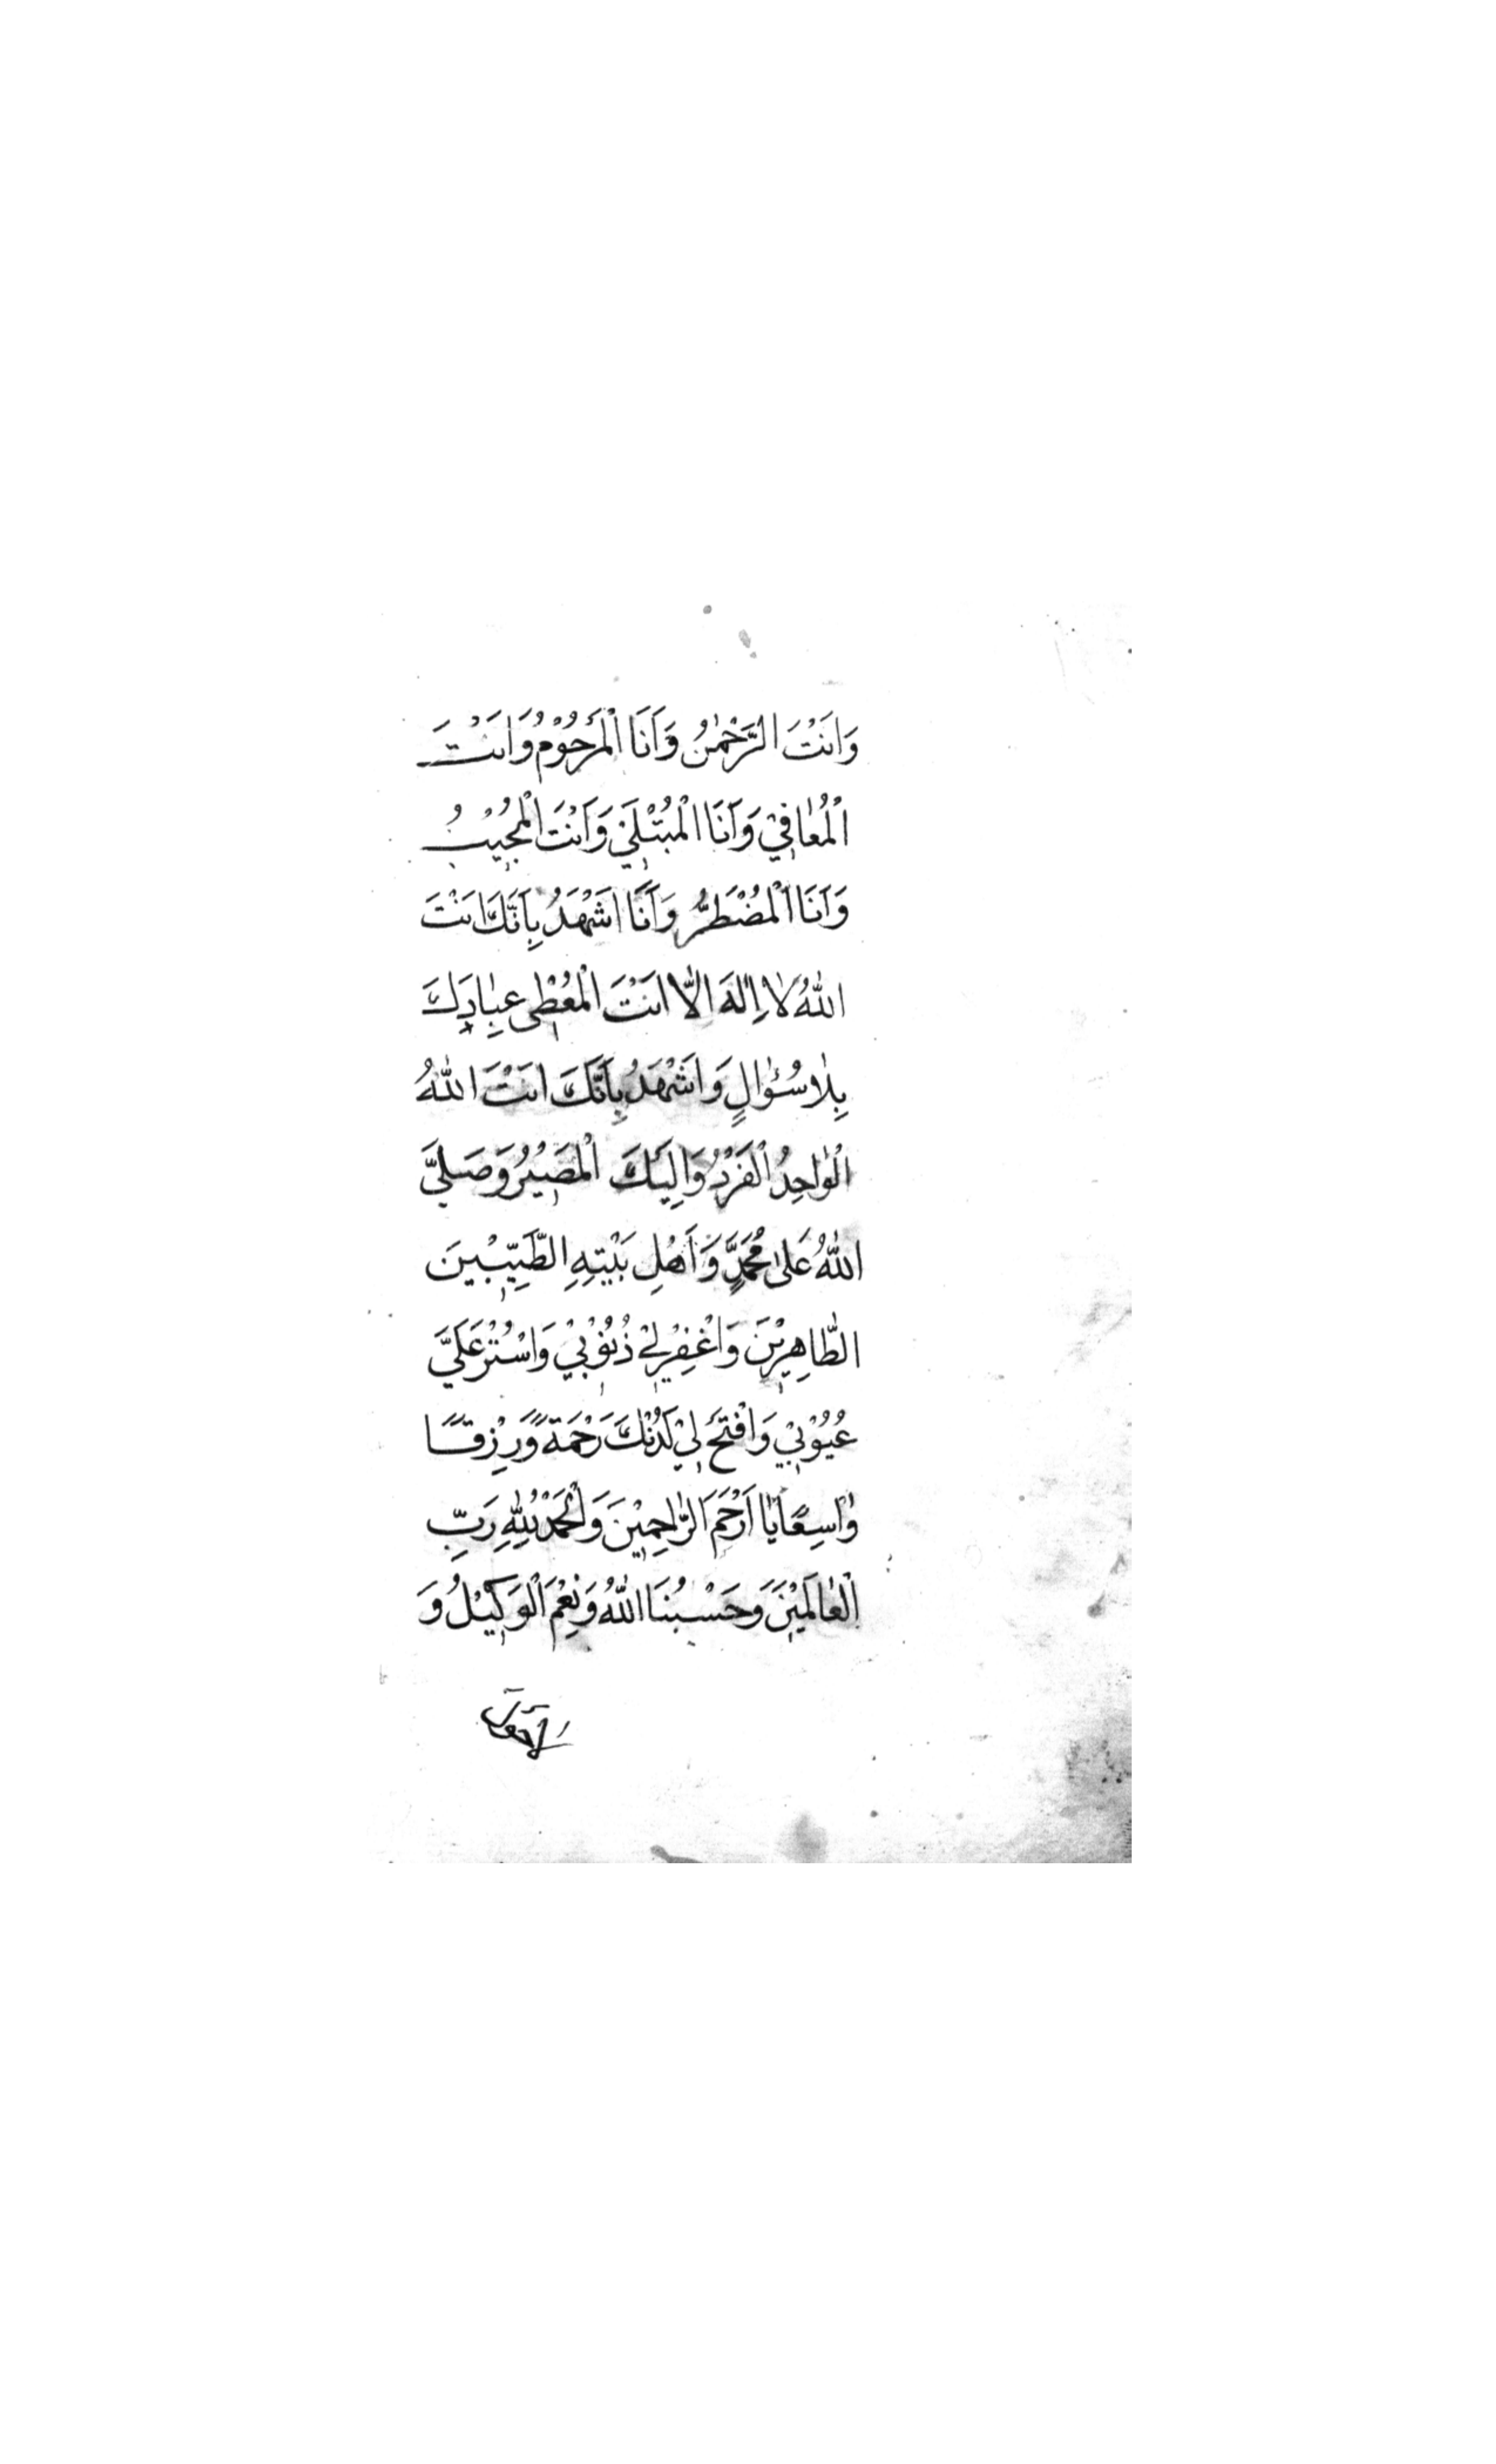 وَاَنْتَ الرَّحْمٰنُ وَاَنَا الْمَرْحُوْمُ وَاَنْتَ
الْمُعٰافِيْ وَاَنَا الْمُبْتَلٰى وَاَنْتَ الْمُجِيْبُ
وَاَنَا الْمُضْطَرُّ وَاَنَا اَشْهَدُ بِاَنَّكَ اَنْتَ
اللّٰهُ لٰا اِلٰهَ اِلّٰا اَنْتَ الْمُعْطِى عِبٰادِكَ
بِلٰا سُؤٰالٍ وَاَشْهَدُ بِاَنَّكَ اَنْتَ اللّٰهُ
الْوٰاحِدُ الْفَرْدُ وَاِلَيْكَ الْمَصِيْرُ وَصَلَّى
اللّٰهُ عَلٰى مُحَمَّدٍ وَاَهْلِ بَيْتِهِ الطَّيِّبِيْنَ
الطّٰاهِرِيْنَ وَاغْفِرْ لِيْ ذُنُوْبِيْ وَاسْتُرْ عَلَيَّ
عُيُوْبِيْ وَافْتَحْ لِيْ لَدُنْكَ رَحْمَةً وَّرِزْقًا
وٰاسِعًا يٰا اَرْحَمَ الرّٰاحِمِيْنَ وَالْحَمْدُ لِلّٰهِ رَبِّ
الْعٰالَمِيْنَ وَحَسْبُنَا اللّٰهُ وَنِعْمَ الْوَكِيْلُ وَ